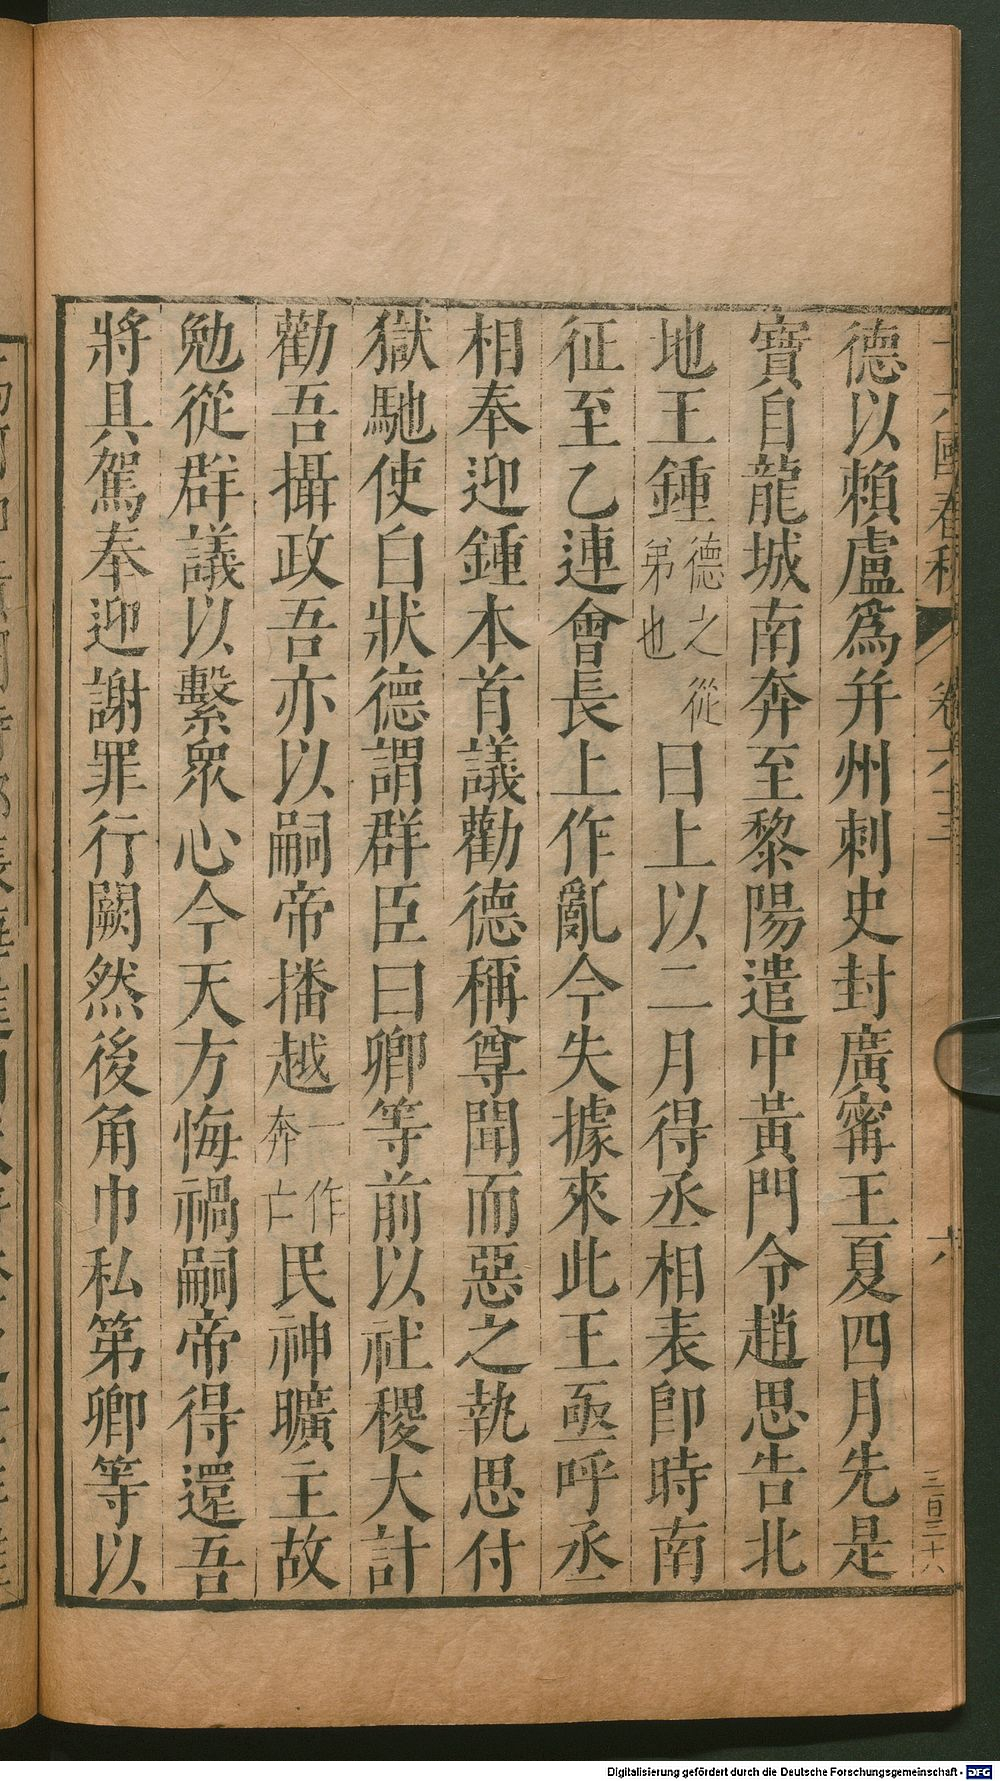 十六國春秋 卷六十三 六 三百三十六
德以賴盧爲幷州刺史封廣甯王夏四月先是
寶自龍城南奔至黎陽遣中黃門令趙思告北
地王鍾德之從弟也曰上以二月得丞相表卽時南
征至乙連會長上作亂今失據來此王亟呼丞
相奉迎鍾本首議勸德稱尊聞而惡之執思付
獄馳使白狀德謂群臣曰卿等前以社稷大計
勸吾攝政吾亦以嗣帝播越一作奔亡民神曠主故
勉從群議以繫衆心今天方悔禍嗣帝得還吾
將具駕奉迎謝罪行闕然後角巾私第卿等以
Digitalisierung gefördert durch die Deutsche Forschungsgemeinschaft - DFG